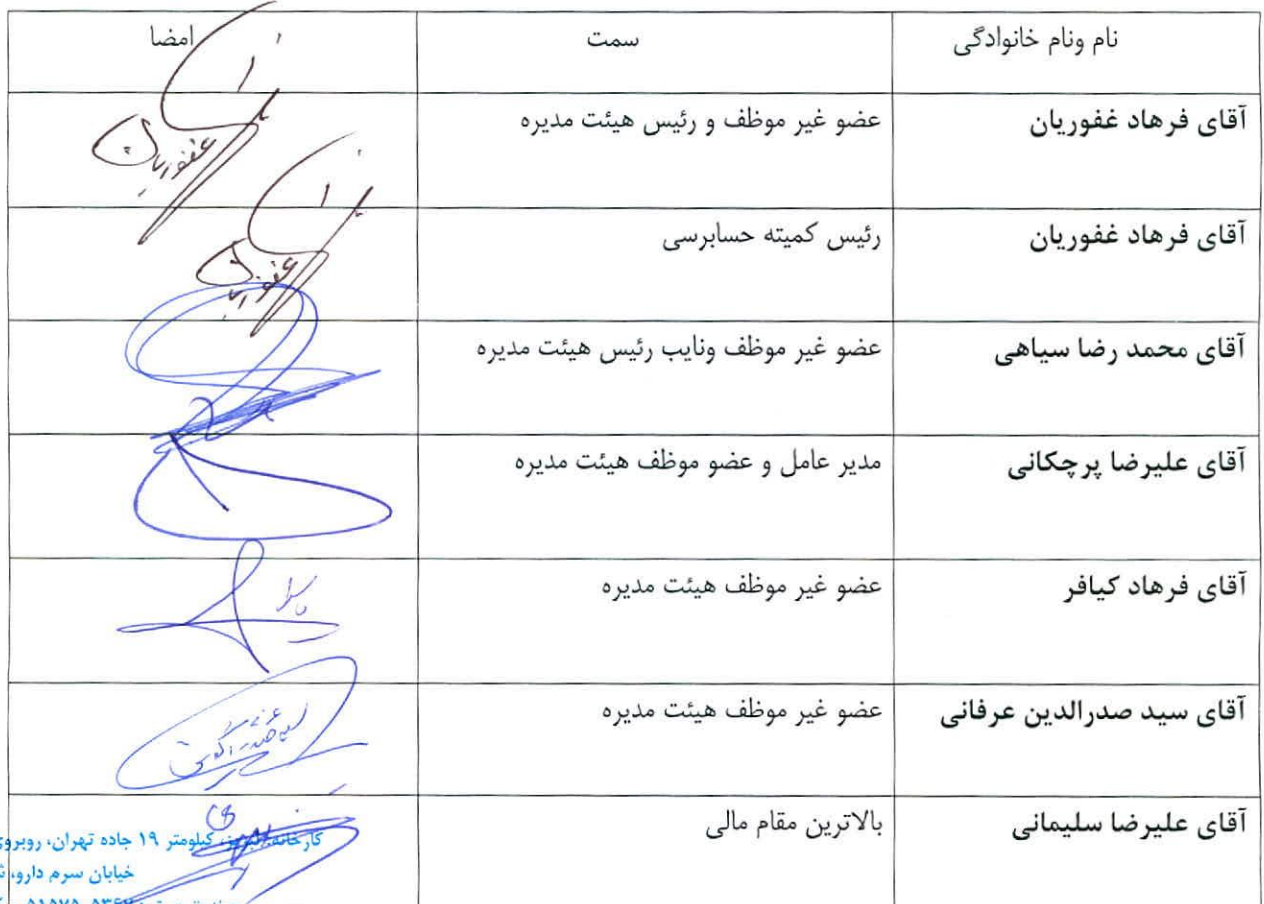 نام ونام خانوادگی سمت امضا
آقای فرهاد غفوریان عضو غیر موظف و رئیس هیئت مدیره
غفوریان
آقای فرهاد غفوریان رئیس کمیته حسابرسی
آقای محمد رضا سیاهی عضو غیر موظف ونایب رئیس هیئت مدیره
آقای علیرضا پرچکانی مدیر عامل و عضو موظف هیئت مدیره
آقای فرهاد کیافر عضو غیر موظف هیئت مدیره
آقای سید صدرالدین عرفانی عضو غیر موظف هیئت مدیره
آقای علیرضا سلیمانی بالاترین مقام مالی
کیلومتر ۱۹ جاده تهران، روبروی
خیابان سرم دارو،